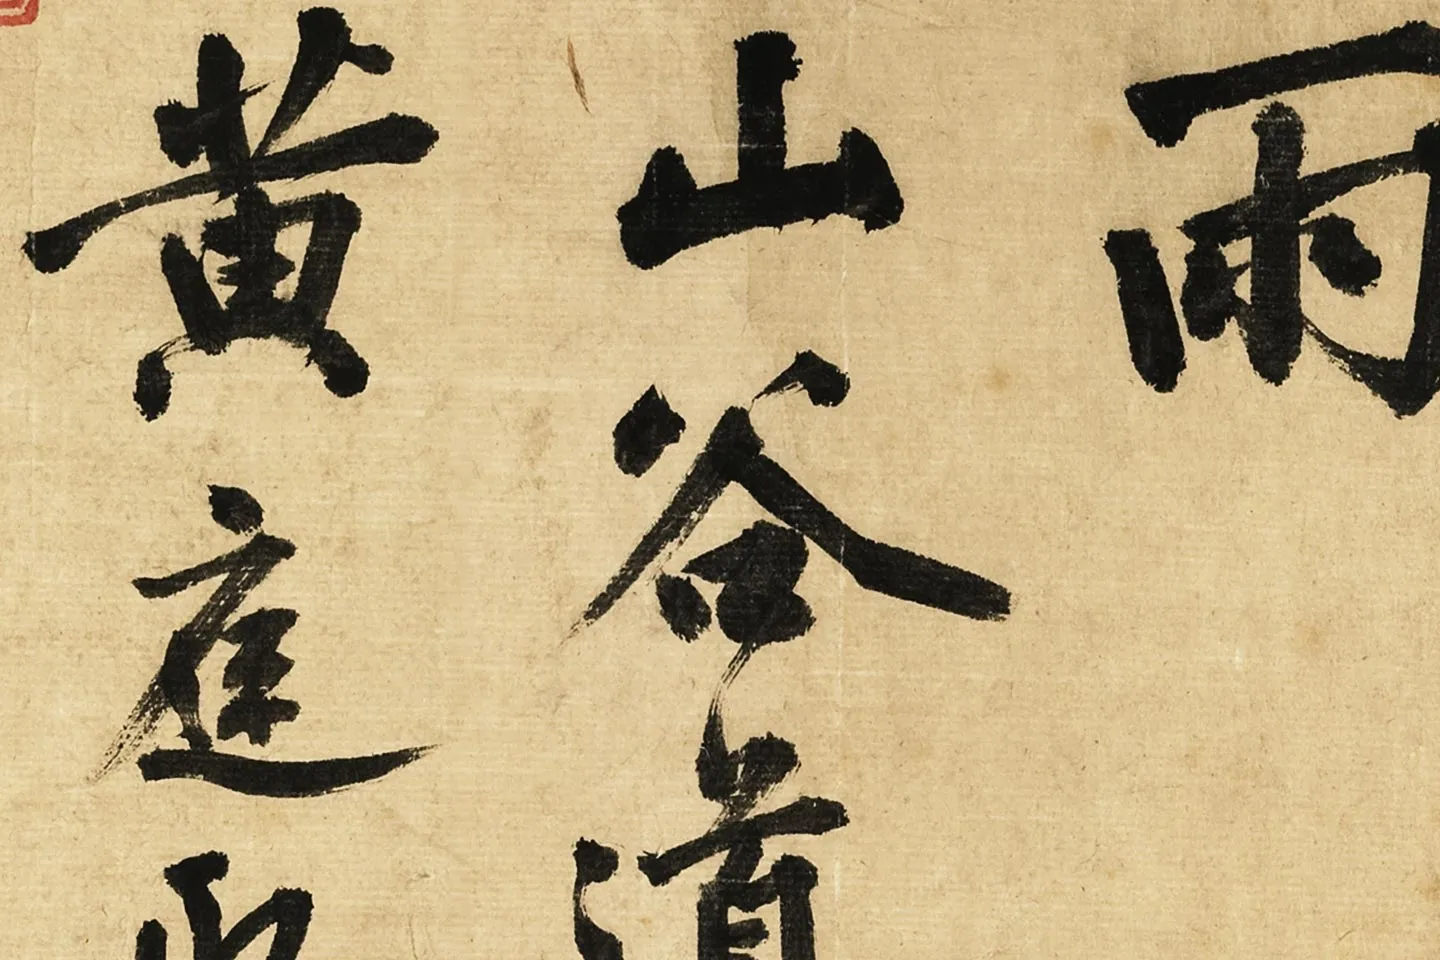 雨
山谷道
黄庭